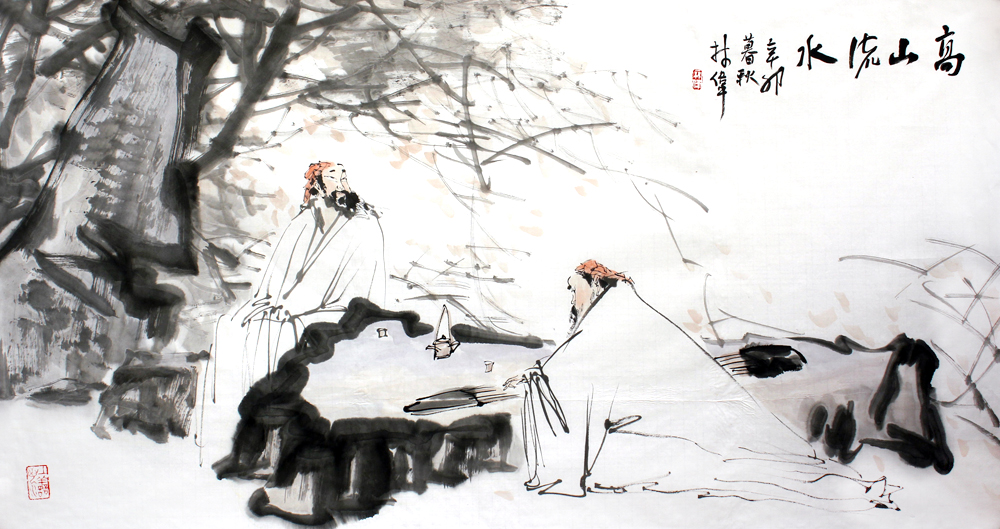 高山流水
辛卯
暮秋
林偉